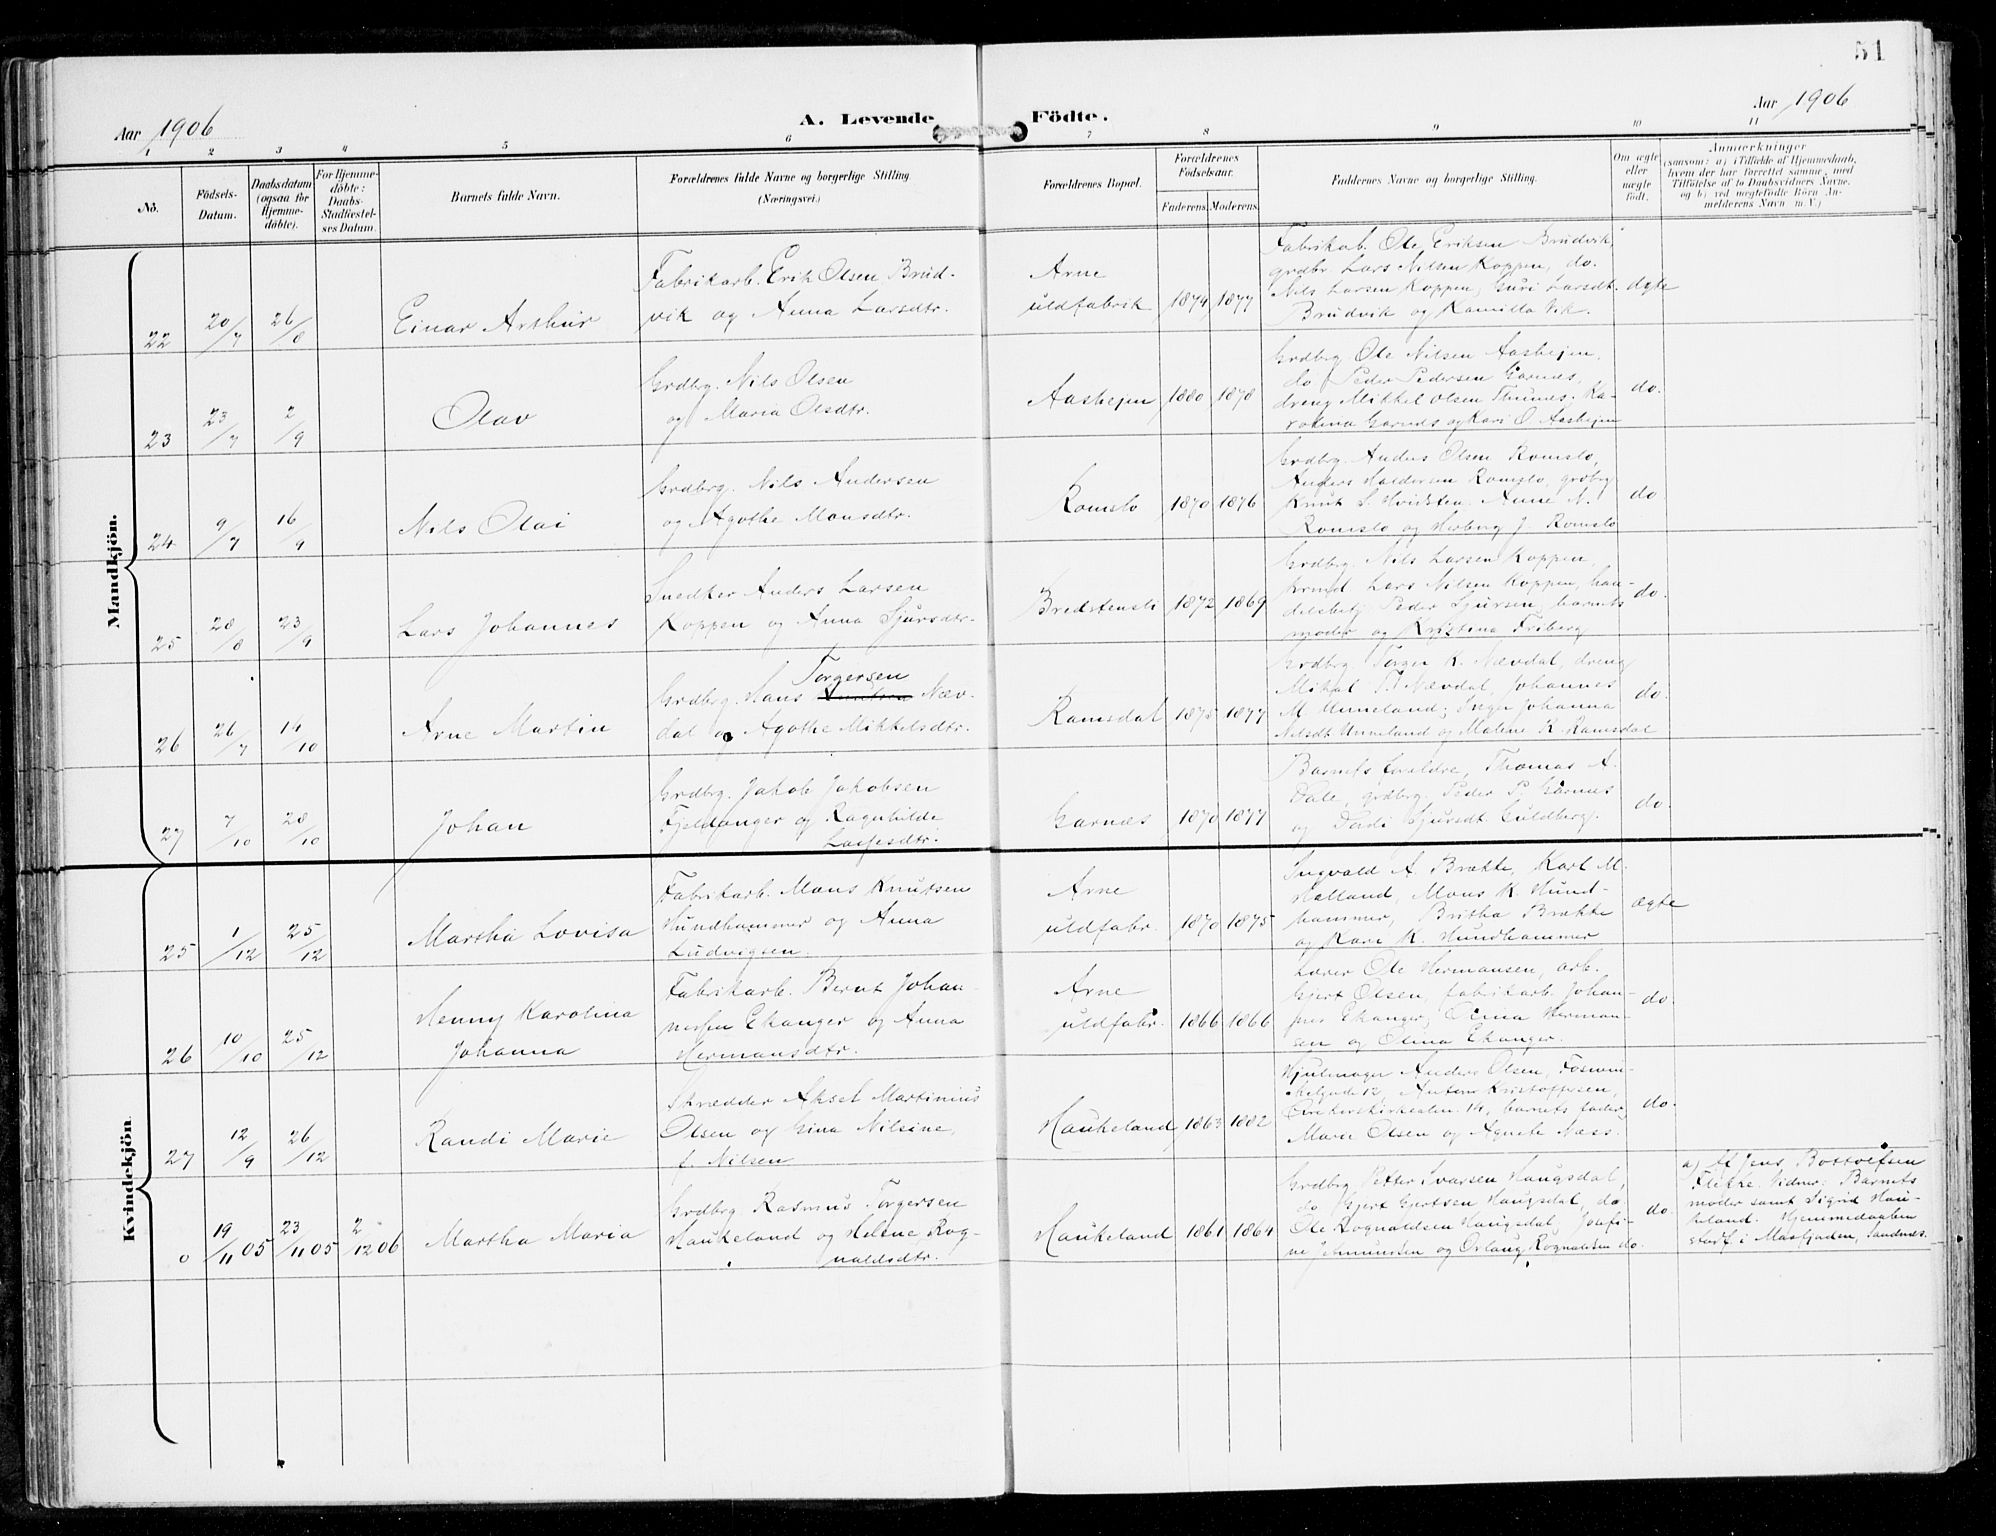 51
Aar 1906
A. Levende Födte.
Aar 1906
1 2 3 4 5 6 7 8 9 10 11
No.
Födsels-
Datum.
Daabsdatum
(ogsaa för
Hjemme-
döbte).
For Hjemme-
döbte:
Daabs-
Stadfæstel-
ses Datum.
Barnets fulde Navn.
Forældrenes fulde Navne og borgerlige Stilling
(Næringsvei.)
Forældrenes Bopæl.
Forældrenes
Födselsaar.
Faderens. Moderens.
Faddernes Navne og borgerlige Stilling.
Om ægte
eller
uægte
födt.
Anmærkninger
(saasom: a) i Tilfælde af Hjemmedaab,
hvem der har forrettet samme, med
Tilföielse af to Daabsvidners Navne,
og b) ved uegtefödte Börn An-
melderens Navn m. V.)
Mandkjön.
22
20/7
26/8
Einar Arthur
Fabrikarb. Erik Olsen Brud-
vik og Anna Larsdtr.
Arne
uldfabrik
1874 1877
Fabrikarb. Ole Eriksen Brudvik,
grdbr. Lars Nilsen Koppen, do.
Nils Larsen Koppen, Guri Larsdt.
Brudvik og Kamilla Vik.
ægte
23
23/7
2/9
Olav
Grdbrg. Nils Olsen
og Maria Olsdtr.
Aashejen
1880 1878
Grdbrg. Ole Nilsen Aashejen,
do Peder Pedersen Garnes,
dreng Mikkel Olsen Thunes, Ka-
rolina Garnes og Kari O. Aashejen
do.
24
9/7
16/9
Nils Olai
Grdbrg. Nils Andersen
og Agothe Monsdtr.
Romslo
1870 1876
Grdbrg. Anders Olsen Romslo,
Anders Haldorsen Romslo, grdbrg
Knut S. Hvidsten, Anne N.
Romslo og Herborg J. Romslo
do
25
28/8
23/9
Lars Johannes
Snedker Anders Larsen
Koppen og Anna Sjursdtr.
Bredstensli
1872 1869
Grdbrg. Nils Larsen Koppen,
Lars Nilsen Koppen, han-
delsbetj. Peder Sjursen, barnets
moder og Kristina Friberg
do.
26
26/7
14/10
Arne Martin
Torgersen
Grdbrg. Hans Næv-
dal og Agothe Mikkelsdtr.
Ramsdal
1875 1877
Grdbrg. Torger K. Nævdal, dreng
Mikal T. Nævdal, Johannes
M. Unneland, Inger Johanna
Nilsdt Unneland og Malene K. Ramsdal
do.
27
7/10
28/10
Johan
Grdbrg. Jakob Jakobsen
Fjeldanger og Ragnhilde
Lassesdtr.
Garnæs
1870 1877
Barnets forældre, Thomas A.
Dale, grdbrg. Peder P. Garnes
og Dordi Sjursdt. Guldberg.
do.
Kvindekjön
25
1/12
25/12
Martha Lovisa
Fabrikarb. Mons Knutsen
Hundhammer og Anna
Ludvigsen.
Arne
uldfabr.
1870 1875
Ingvald A. Brække, Karl M.
Helland, Mons K. Hund-
hammer, Britha Brække
og Kari K. Hundhammer
ægte
26
10/10
25/12
Henny Karolina
Johanna
Fabrikarb. Bernt Johan-
nessen Ekanger og Anna
Hermansdtr.
Arne
uldfabr.
1866 1866
Lærer Ole Hermansen, arb.
Gjert Olsen, fabrikarb. Johan-
nes Ekanger, Olina Herman-
sen og Olina Ekanger.
do.
27
12/9
26/12
Randi Marie
Skrædder Aksel Martinius
Olsen og Gina Nilsine,
f. Nilsen
Haukeland
1863 1882
Hjulmager Anders Olsen,
12, Anton Kristoffersen,
14, barnets fader,
Marie Olsen og Agnete Næss.
do.
0
19/11 05
23/11 05
2/12 06
Martha Maria
Grdbrg Rasmus Torgersen
Haukeland og Helene Rog-
naldsdtr.
Haukeland
1861 1864
Grdbrg Petter Ivarsen Haugsdal,
do Gjert Gjertsen Haugsdal, do
Ole Rognaldsen Haugsdal, Josefi-
ne og Orlaug Rognaldsen do.
do.
a) Af Jens Bottolfsen
Flekke. Vidner: Barnets
moder samt Sigrid Hau-
keland. Hjemmedaaben
stadf. i Masfjorden, Sandnes.